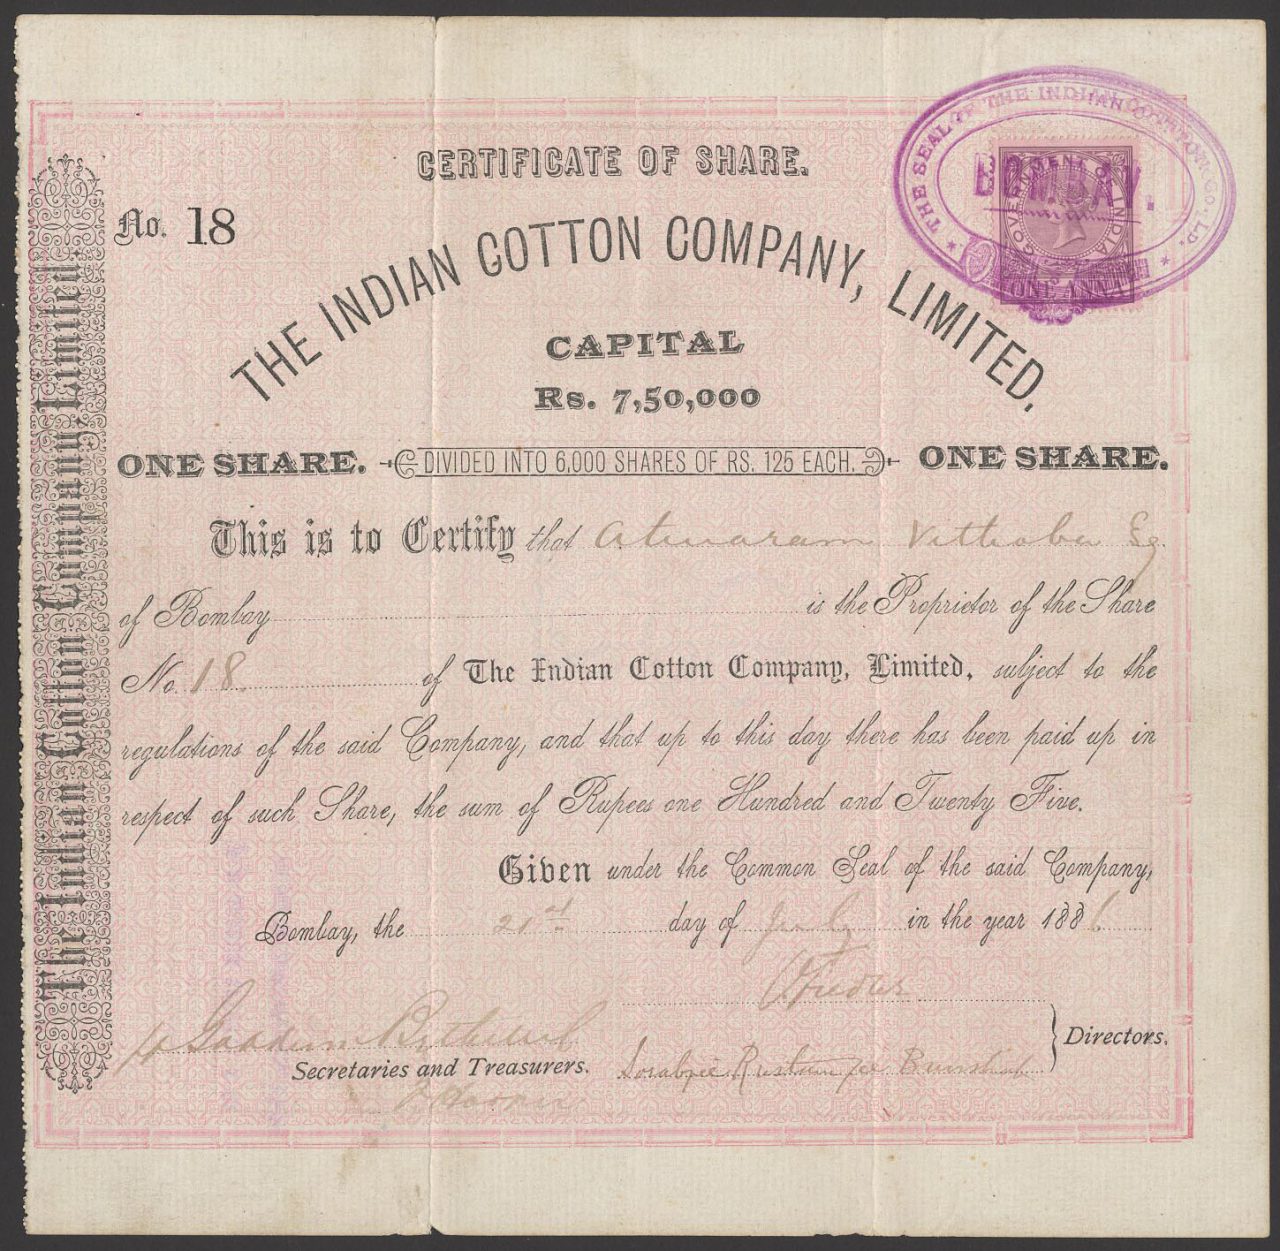 CERTIFICATE OF SHARE.
THE SEAL OF THE INDIAN COTTON CO. LD.
BOMBAY.
GOVERNMENT OF INDIA
ONE ANNA
No. 18
THE INDIAN COTTON COMPANY, LIMITED.
CAPITAL
Rs. 7,50,000
ONE SHARE. DIVIDED INTO 6,000 SHARES OF RS. 125 EACH. ONE SHARE.
This is to Certify that Atmaram Vithoba Esq
of Bombay is the Proprietor of the Share
No. 18. of The Indian Cotton Company, Limited, subject to the
regulations of the said Company, and that up to this day there has been paid up in
respect of such Share, the sum of Rupees one Hundred and Twenty Five.
Given under the Common Seal of the said Company,
Bombay, the 21st day of July in the year 1886
Directors.
Secretaries and Treasurers.
The Indian Cotton Company, Limited.